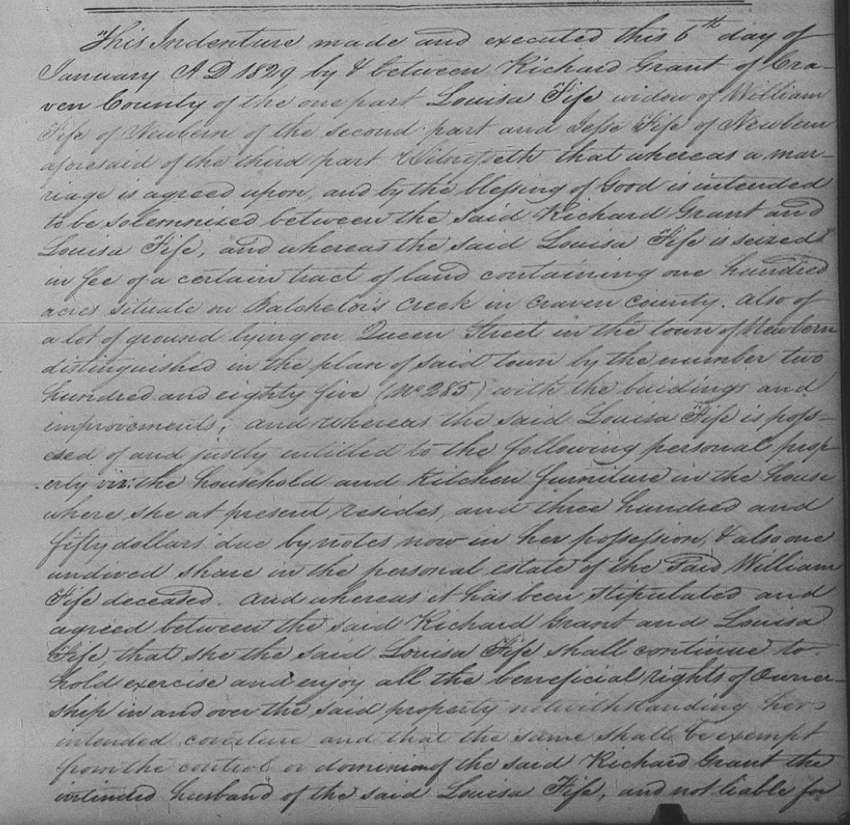 This Indenture made and executed this 6th day of
January A D 1829 by & between Richard Grant of Cra-
ven County of the one part Louisa Fife widow of William
Fife of Newbern of the second part and Jesse Fife of Newbern
aforesaid of the third part Witnesseth that whereas a mar-
riage is agreed upon, and by the blessing of Good is intended
to be solemnized between the said Richard Grant and
Louisa Fife, and whereas the said Louisa Fife is seized
in fee of a certain tract of land containing one hundred
acres situate on Batchelor's Creek in Craven County. Also of
a lot of ground lying on Queen Street in the town of Newbern
distinguished in the plan of said town by the number two
hundred and eighty five (No 285) with the buildings and
improvements; and whereas the said Louisa Fife is poss-
esed of and justly intitled to the following personal prop-
erty viz: the household and Kitchen furniture in the house
where she at present resides, and three hundred and
fifty dollars due by notes now in her possession, & also one
undived share in the personal estate of the said William
Fife deceased. And whereas it has been stipulated and
agreed between the said Richard Grant and Louisa
Fife, that she the said Louisa Fife shall continue to
hold exercise and enjoy all the beneficial rights of Owner-
ship in and over the said property notwithstanding her
intended coverture and that the same shall be exempt
from the control or dominion of the said Richard Grant the
intended husband of the said Louisa Fife, and not liable for